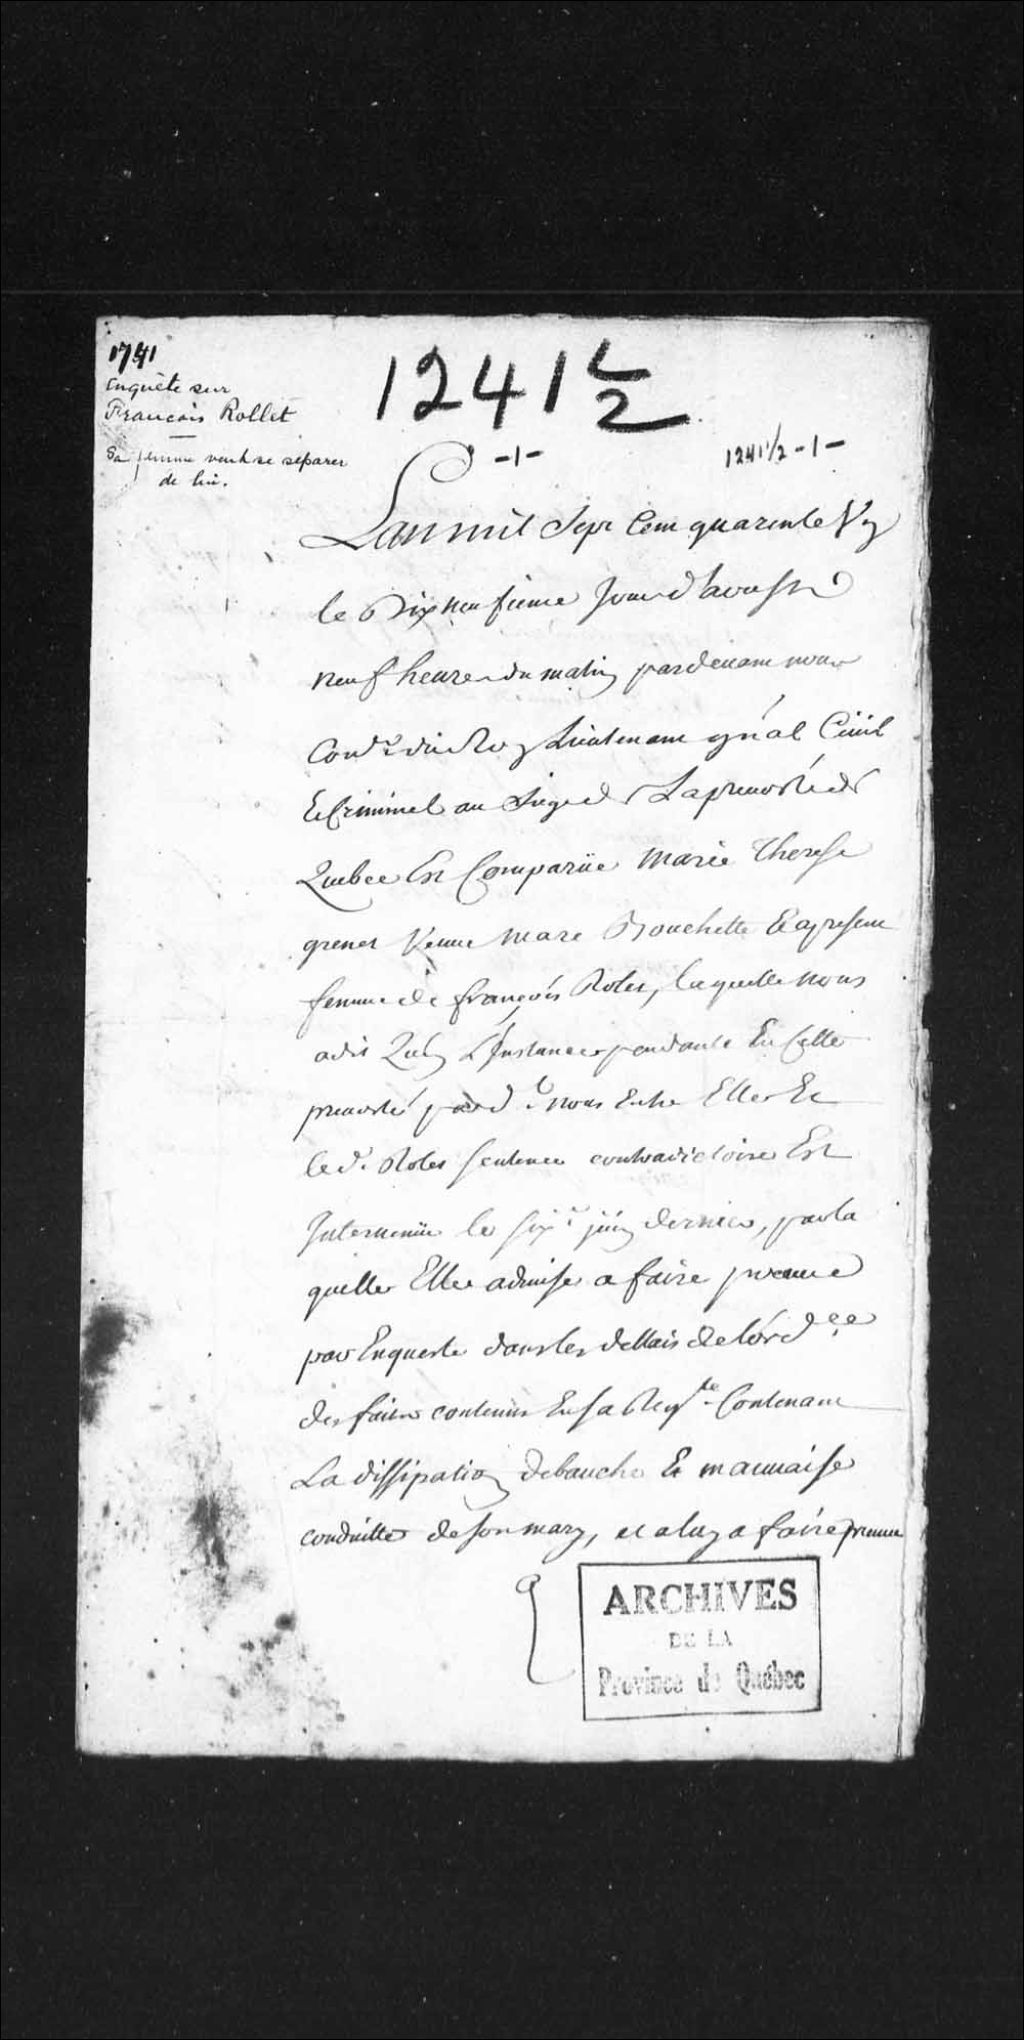 1741
Enquête sur
François Rollet
Sa femme veut se séparer
de lui.
1241 1/2
-1-
1241 1/2 -1-
Lan mil Sept Cent quarente Vn
le Dix neufieme Jour daoust
neuf heures du matin pardevant nous
Con.er du Roy Lieutenant gñal Ciuil
Et Criminel au Siege de La preuosté de
Quebec Est Comparüe Marie Therese
grenet Veuue Marc Bouchette Et apresent
femme de françois Rolet, laquelle nous
a dit Quen Linstance pendante En Cette
preuosté pard.t nous Entre Elle Et
le d. Rolet sentence contradictoire Est
Interuenüe le six.e juin dernier, par la
quelle Elle admise a faire preuue
par Enqueste dans les dellais de lord.ce
des faits contenus En sa Req.te Contenant
La dissipation debauche Et mauuaise
conduitte de son mary, et a luy a faire preuue
ARCHIVES
DE LA
Province de Québec